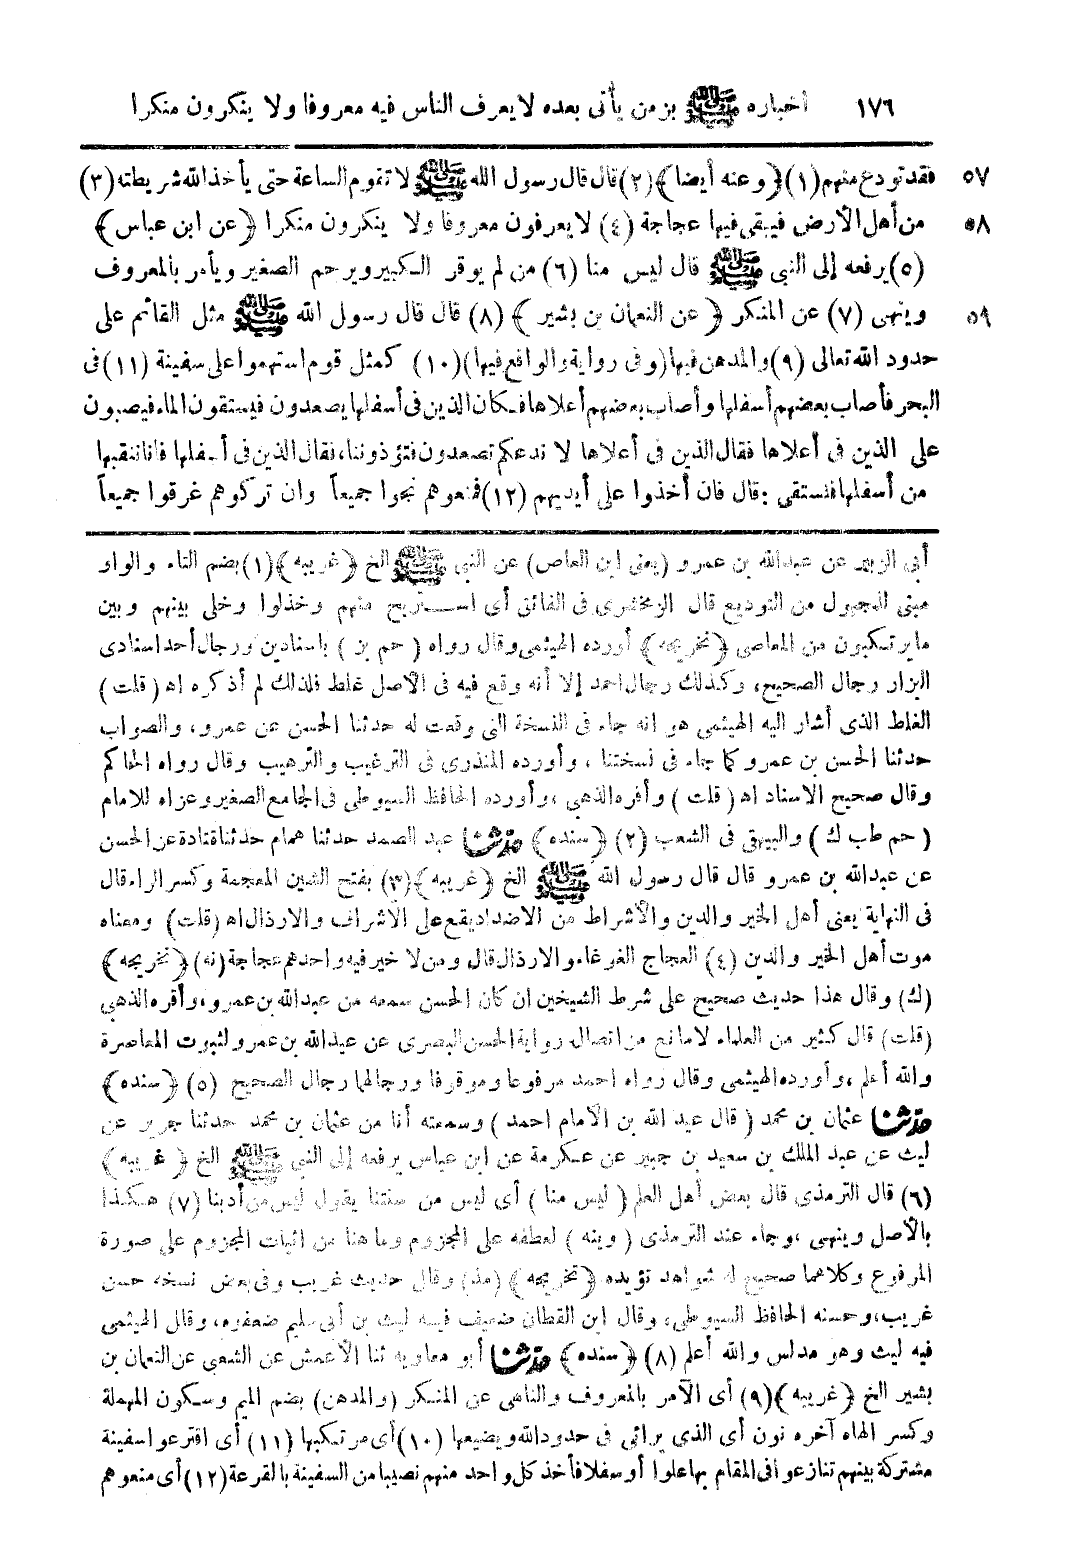 ١٧٦ أخباره ﷺ بزمن يأتى بعده لايعرف الناس فيه معروفا ولا ينكرون منكرا
٥٧ فقد تودع منهم (١) ﴿وعنه أيضا﴾ (٢) قال قال رسول الله ﷺ لاتقوم الساعة حتى يأخذ الله شريطته (٣)
٥٨ من أهل الأرض فيبقى فيها عجاجة (٤) لايعرفون معروفا ولا ينكرون منكرا ﴿عن ابن عباس﴾
(٥) يرفعه إلى النبى ﷺ قال ليس منا (٦) من لم يوقر الكبير ويرحم الصغير ويأمر بالمعروف
٥٩ وينهى (٧) عن المنكر ﴿عن النعمان بن بشير﴾ (٨) قال قال رسول الله ﷺ مثل القائم على
حدود الله تعالى (٩) والمدهن فيها (وفى رواية والواقع فيها) (١٠) كمثل قوم استهموا على سفينة (١١) فى
البحر فأصاب بعضهم أسفلها وأصاب بعضهم أعلاها فكان الذين فى أسفلها يصعدون فيستقون الماء فيصبون
على الذين فى أعلاها فقال الذين فى أعلاها لا ندعكم تصعدون فتؤذوننا، فقال الذين فى أسفلها فاننا ننقبها
من أسفلها فنستقى : قال فان أخذوا على أيديهم (١٢) فمنعوهم نجوا جميعاً وان تركوهم غرقوا جميعاً
أبى الزبير عن عبدالله بن عمرو (يعنى ابن العاص) عن النبى ﷺ الخ ﴿غريبه﴾ (١) بضم التاء والواو
مبنى للمجهول من التوديع قال الزمخشرى فى الفائق أى استريح منهم وخذلوا وخلى بينهم وبين
مايرتكبون من المعاصى ﴿تخريجه﴾ أورده الهيثمى وقال رواه (حم بز) باسنادين ورجال أحد اسنادى
البزار رجال الصحيح، وكذلك رجال احمد إلا أنه وقع فيه فى الأصل غلط فلذلك لم أذكره اه (قلت)
الغلط الذى أشار اليه الهيثمى هو انه جاء فى النسخة التى وقعت له حدثنا الحسن عن عمرو، والصواب
حدثنا الحسن بن عمرو كما جاء فى نسختنا ، وأورده المنذرى فى الترغيب والترهيب وقال رواه الحاكم
وقال صحيح الاسناد اه (قلت) وأقره الذهبى، وأورده الحافظ السيوطى فى الجامع الصغير وعزاه للامام
(حم طب ك) والبيهقى فى الشعب (٢) ﴿سنده﴾ حدثنا عبد الصمد حدثنا همام حدثنا قتادة عن الحسن
عن عبدالله بن عمرو قال قال رسول الله ﷺ الخ ﴿غريبه﴾ (٣) بفتح الشين المعجمة وكسر الراء قال
فى النهاية يعنى أهل الخير والدين والأشراط من الاضداد يقع على الاشراف والارذال اه (قلت) ومعناه
موت أهل الخير والدين (٤) العجاج الغوغاء والارذال قال ومن لا خير فيه واحدهم عجاجة (نه) ﴿تخريجه﴾
(ك) وقال هذا حديث صحيح على شرط الشيخين ان كان الحسن سمعه من عبدالله بن عمرو، وأقره الذهبى
(قلت) قال كثير من العلماء لامانع من اتصال رواية الحسن البصرى عن عبدالله بن عمرو لثبوت المعاصرة
والله أعلم، وأورده الهيثمى وقال رواه احمد مرفوعا وموقوفا ورجالهما رجال الصحيح (٥) ﴿سنده﴾
حدثنا عثمان بن محمد (قال عبد الله بن الامام احمد) وسمعته أنا من عثمان بن محمد حدثنا جرير عن
ليث عن عبد الملك بن سعيد بن جبير عن عكرمة عن ابن عباس يرفعه إلى النبى ﷺ الخ ﴿غريبه﴾
(٦) قال الترمذى قال بعض أهل العلم (ليس منا) أى ليس من سنتنا يقول ليس من أدبنا (٧) هكذا
بالأصل وينهى، وجاء عند الترمذى (وينه) لعطفه على المجزوم وماهنا من اثبات المجزوم على صورة
المرفوع وكلاهما صحيح له شواهد تؤيده ﴿تخريجه﴾ (مذ) وقال حديث غريب وفى بعض نسخه حسن
غريب، وحسنه الحافظ السيوطى، وقال ابن القطان ضعيف فيه ليث بن أبى سليم ضعفوه، وقال الهيثمى
فيه ليث وهو مدلس والله أعلم (٨) ﴿سنده﴾ حدثنا أبو معاويه ثنا الأعمش عن الشعبى عن النعمان بن
بشير الخ ﴿غريبه﴾ (٩) أى الآمر بالمعروف والناهى عن المنكر (والمدهن) بضم الميم وسكون المهملة
وكسر الهاء آخره نون أى الذى يرائى فى حدود الله ويضيعها (١٠) أى مرتكبها (١١) أى اقترعوا سفينة
مشتركة بينهم تنازعوا فى المقام بها علوا أو سفلا فأخذ كل واحد منهم نصيبا من السفينة بالقرعة (١٢) أى منعوهم